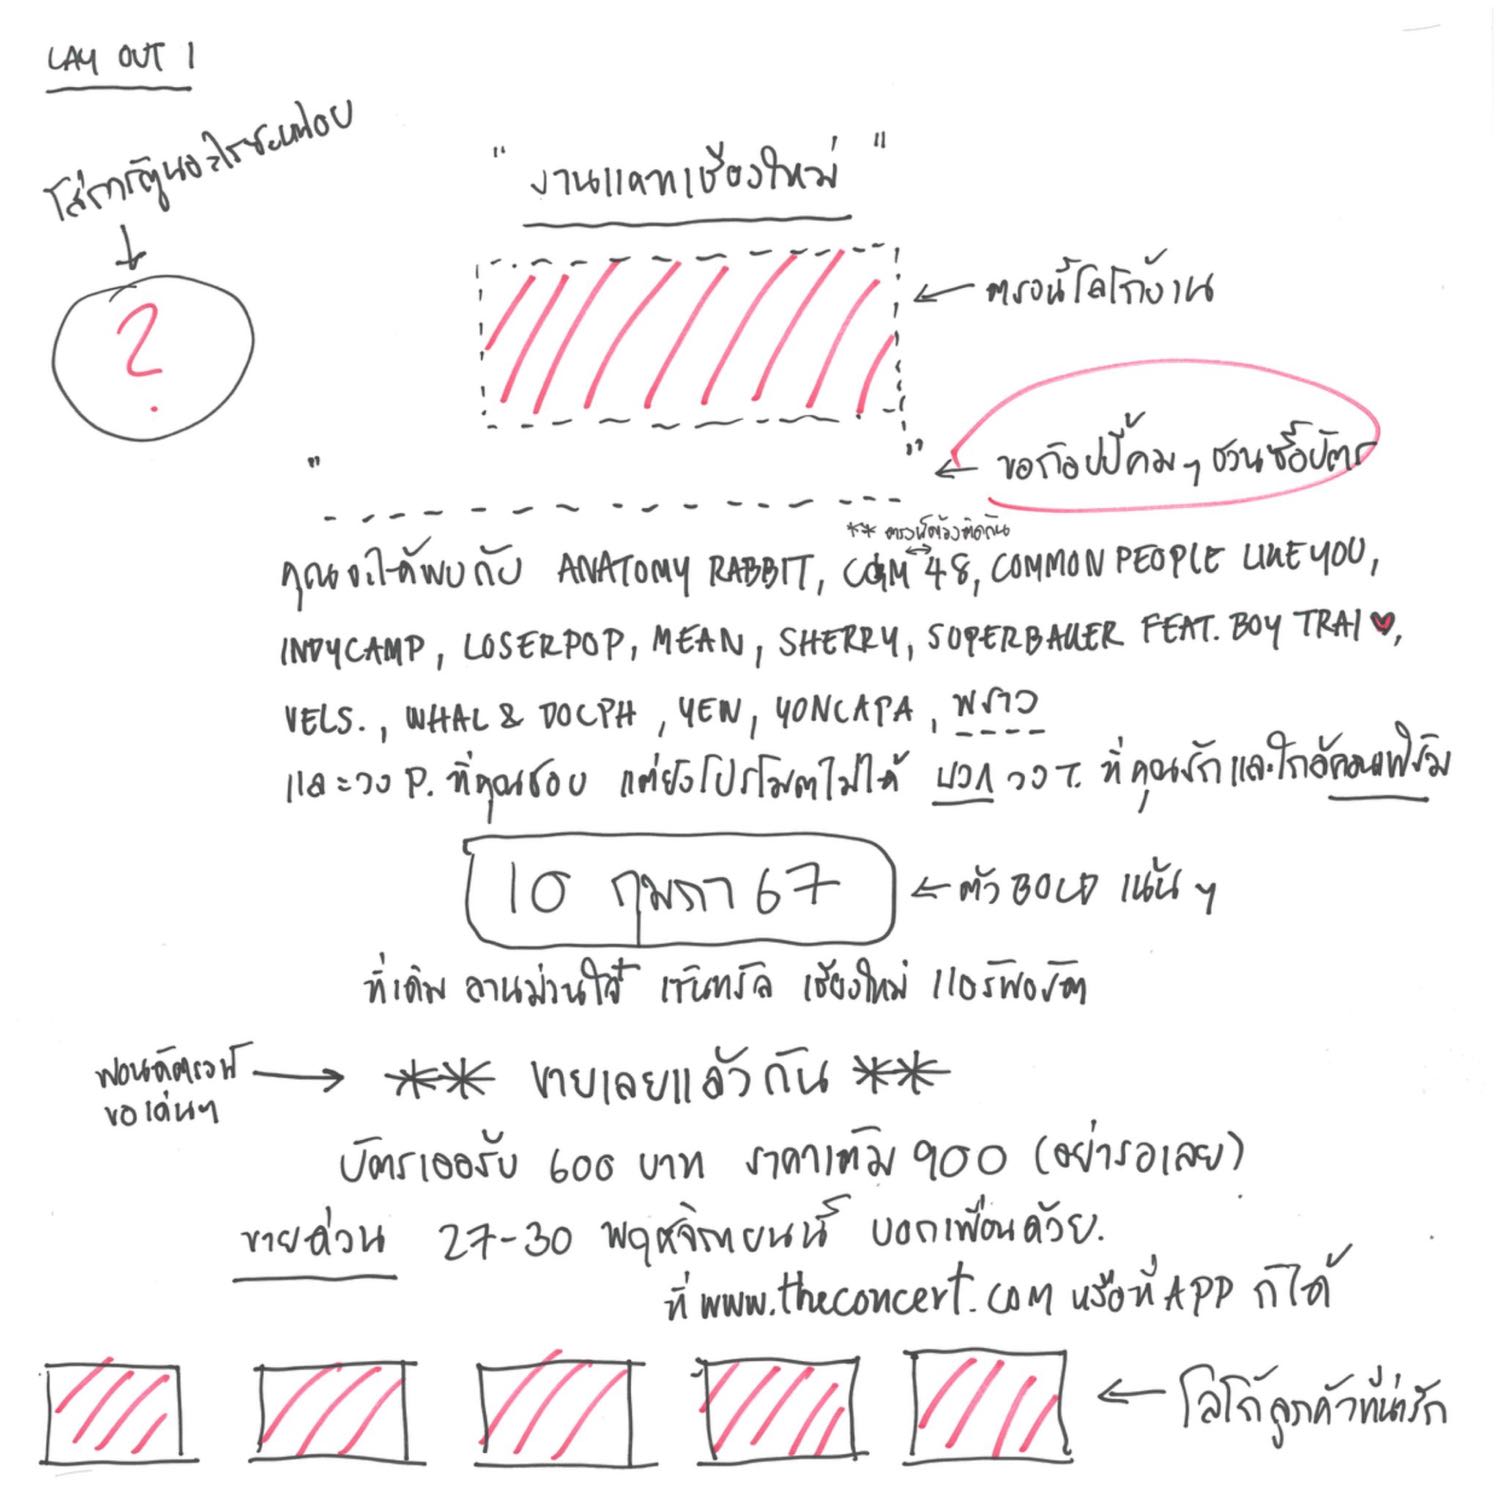 LAY OUT 1
ใส่การ์ตูนอะไรซะหน่อย
?
"งานแคทเชียงใหม่"
← ตรงนี้โลโก้งาน
" "
← ขอก๊อปปี้คมๆ ชวนซื้อบัตร
** ตรงนี้ต้องติดกัน
คุณจะได้พบกับ ANATOMY RABBIT, CGM 48, COMMON PEOPLE LIKE YOU,
INDYCAMP, LOSERPOP, MEAN, SHERRY, SUPERBAKER FEAT. BOY TRAI ♥,
VELS., WHAL & DOLPH, YEW, YONLAPA, พราว
และวง P. ที่คุณชอบ แต่ยังโปรโมตไม่ได้ บวก วง T. ที่คุณรักและใกล้คอนเฟิร์ม
10 กุมภา 67
← ตัว BOLD เน้นๆ
ที่เดิม ลานม่วนใจ๋ เซ็นทรัล เชียงใหม่ แอร์พอร์ต
ฟอนต์ตรงนี้
ขอเด่นๆ
** ขายเลยแล้วกัน **
บัตรเออรับ 600 บาท ราคาเต็ม 900 (อย่ารอเลย)
ขายด่วน 27-30 พฤศจิกายนนี้ บอกเพื่อนด้วย.
ที่ www.theconcert.com หรือที่ APP ก็ได้
← โลโก้ลูกค้าที่น่ารัก